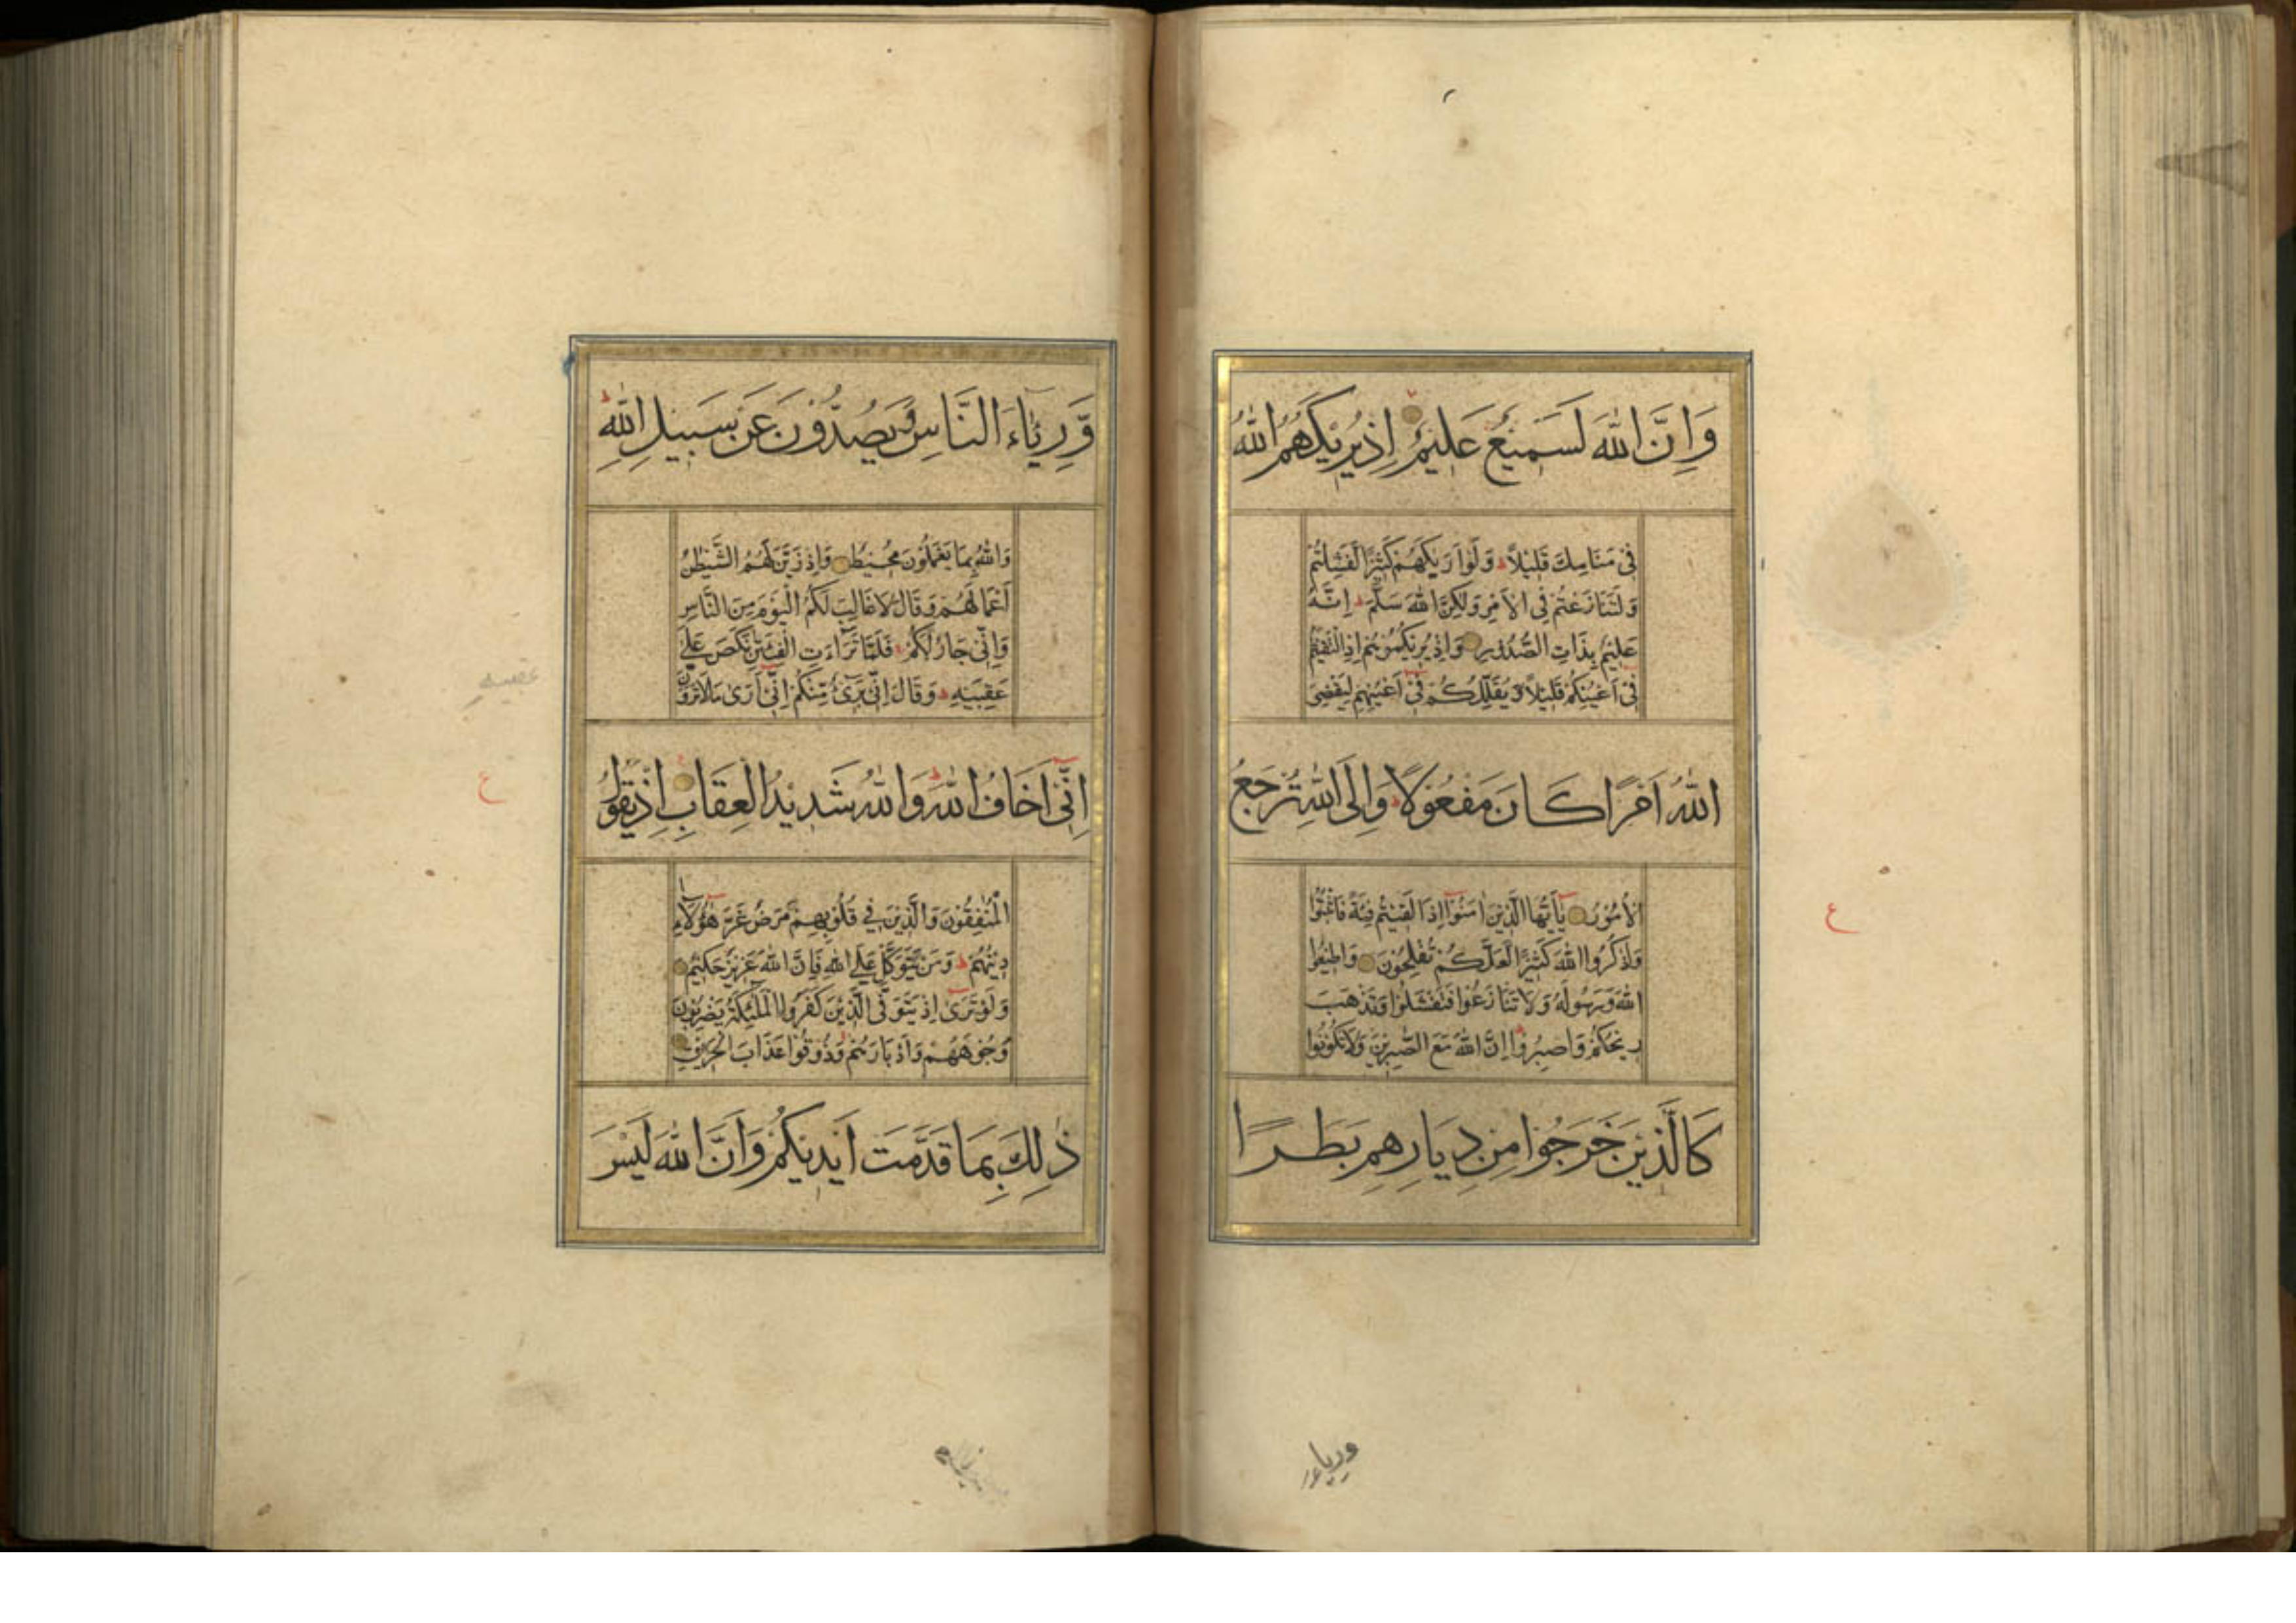 وَاِنَّ اللّٰهَ لَسَمِيْعٌ عَلِيْمٌ اِذْ يُرِيْكَهُمُ اللّٰهُ
فِىْ مَنَامِكَ قَلِيْلاً وَلَوْ اَرٰىكَهُمْ كَثِيْرًا لَّفَشِلْتُمْ
وَلَتَنَازَعْتُمْ فِى الْاَمْرِ وَلٰكِنَّ اللّٰهَ سَلَّمَ اِنَّهُ
عَلِيْمٌ بِذَاتِ الصُّدُوْرِ وَاِذْ يُرِيْكُمُوْهُمْ اِذِ الْتَقَيْتُمْ
فِىْ اَعْيُنِكُمْ قَلِيْلاً وَّيُقَلِّلُكُمْ فِىْ اَعْيُنِهِمْ لِيَقْضِىَ
اللّٰهُ اَمْرًا كَانَ مَفْعُوْلًا وَاِلَى اللّٰهِ تُرْجَعُ
الْاُمُوْرُ يٰاَيُّهَا الَّذِيْنَ اٰمَنُوْا اِذَا لَقِيْتُمْ فِئَةً فَاثْبُتُوْا
وَاذْكُرُوا اللّٰهَ كَثِيْرًا لَّعَلَّكُمْ تُفْلِحُوْنَ وَاَطِيْعُوا
اللّٰهَ وَرَسُوْلَهُ وَلَا تَنَازَعُوْا فَتَفْشَلُوْا وَتَذْهَبَ
رِيْحُكُمْ وَاصْبِرُوْا اِنَّ اللّٰهَ مَعَ الصّٰبِرِيْنَ وَلَا تَكُوْنُوْا
كَالَّذِيْنَ خَرَجُوْا مِنْ دِيَارِهِمْ بَطَرًا
ع
ورياء
وَّرِئَاءَ النَّاسِ وَيَصُدُّوْنَ عَنْ سَبِيْلِ اللّٰهِ
وَاللّٰهُ بِمَا يَعْمَلُوْنَ مُحِيْطٌ وَاِذْ زَيَّنَ لَهُمُ الشَّيْطٰنُ
اَعْمَالَهُمْ وَقَالَ لَا غَالِبَ لَكُمُ الْيَوْمَ مِنَ النَّاسِ
وَاِنِّىْ جَارٌ لَّكُمْ فَلَمَّا تَرَاءَتِ الْفِئَتٰنِ نَكَصَ عَلٰى
عَقِبَيْهِ وَقَالَ اِنِّىْ بَرِىْءٌ مِّنْكُمْ اِنِّىْ اَرٰى مَا لَا تَرَوْنَ
اِنِّىْ اَخَافُ اللّٰهَ وَاللّٰهُ شَدِيْدُ الْعِقَابِ اِذْ يَقُوْلُ
الْمُنٰفِقُوْنَ وَالَّذِيْنَ فِىْ قُلُوْبِهِمْ مَّرَضٌ غَرَّ هٰؤُلَاءِ
دِيْنُهُمْ وَمَنْ يَّتَوَكَّلْ عَلَى اللّٰهِ فَاِنَّ اللّٰهَ عَزِيْزٌ حَكِيْمٌ
وَلَوْ تَرٰى اِذْ يَتَوَفَّى الَّذِيْنَ كَفَرُوا الْمَلٰئِكَةُ يَضْرِبُوْنَ
وُجُوْهَهُمْ وَاَدْبَارَهُمْ وَذُوْقُوْا عَذَابَ الْحَرِيْقِ
ذٰلِكَ بِمَا قَدَّمَتْ اَيْدِيْكُمْ وَاَنَّ اللّٰهَ لَيْسَ
ع